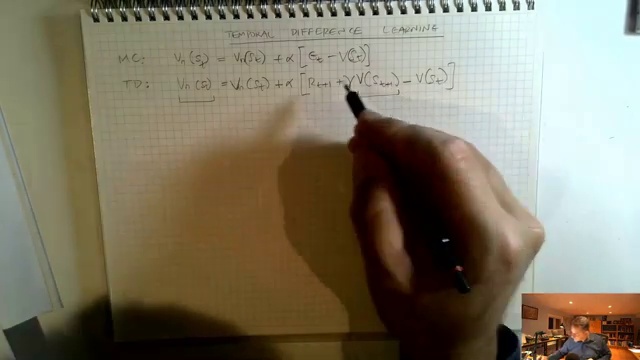 TEMPORAL DIFFERENCE LEARNING
MC: Vπ(St) = Vπ(St) + α [Gt − V(St)]
TD: Vπ(St) = Vπ(St) + α [Rt+1 + γV(St+1) − V(St)]